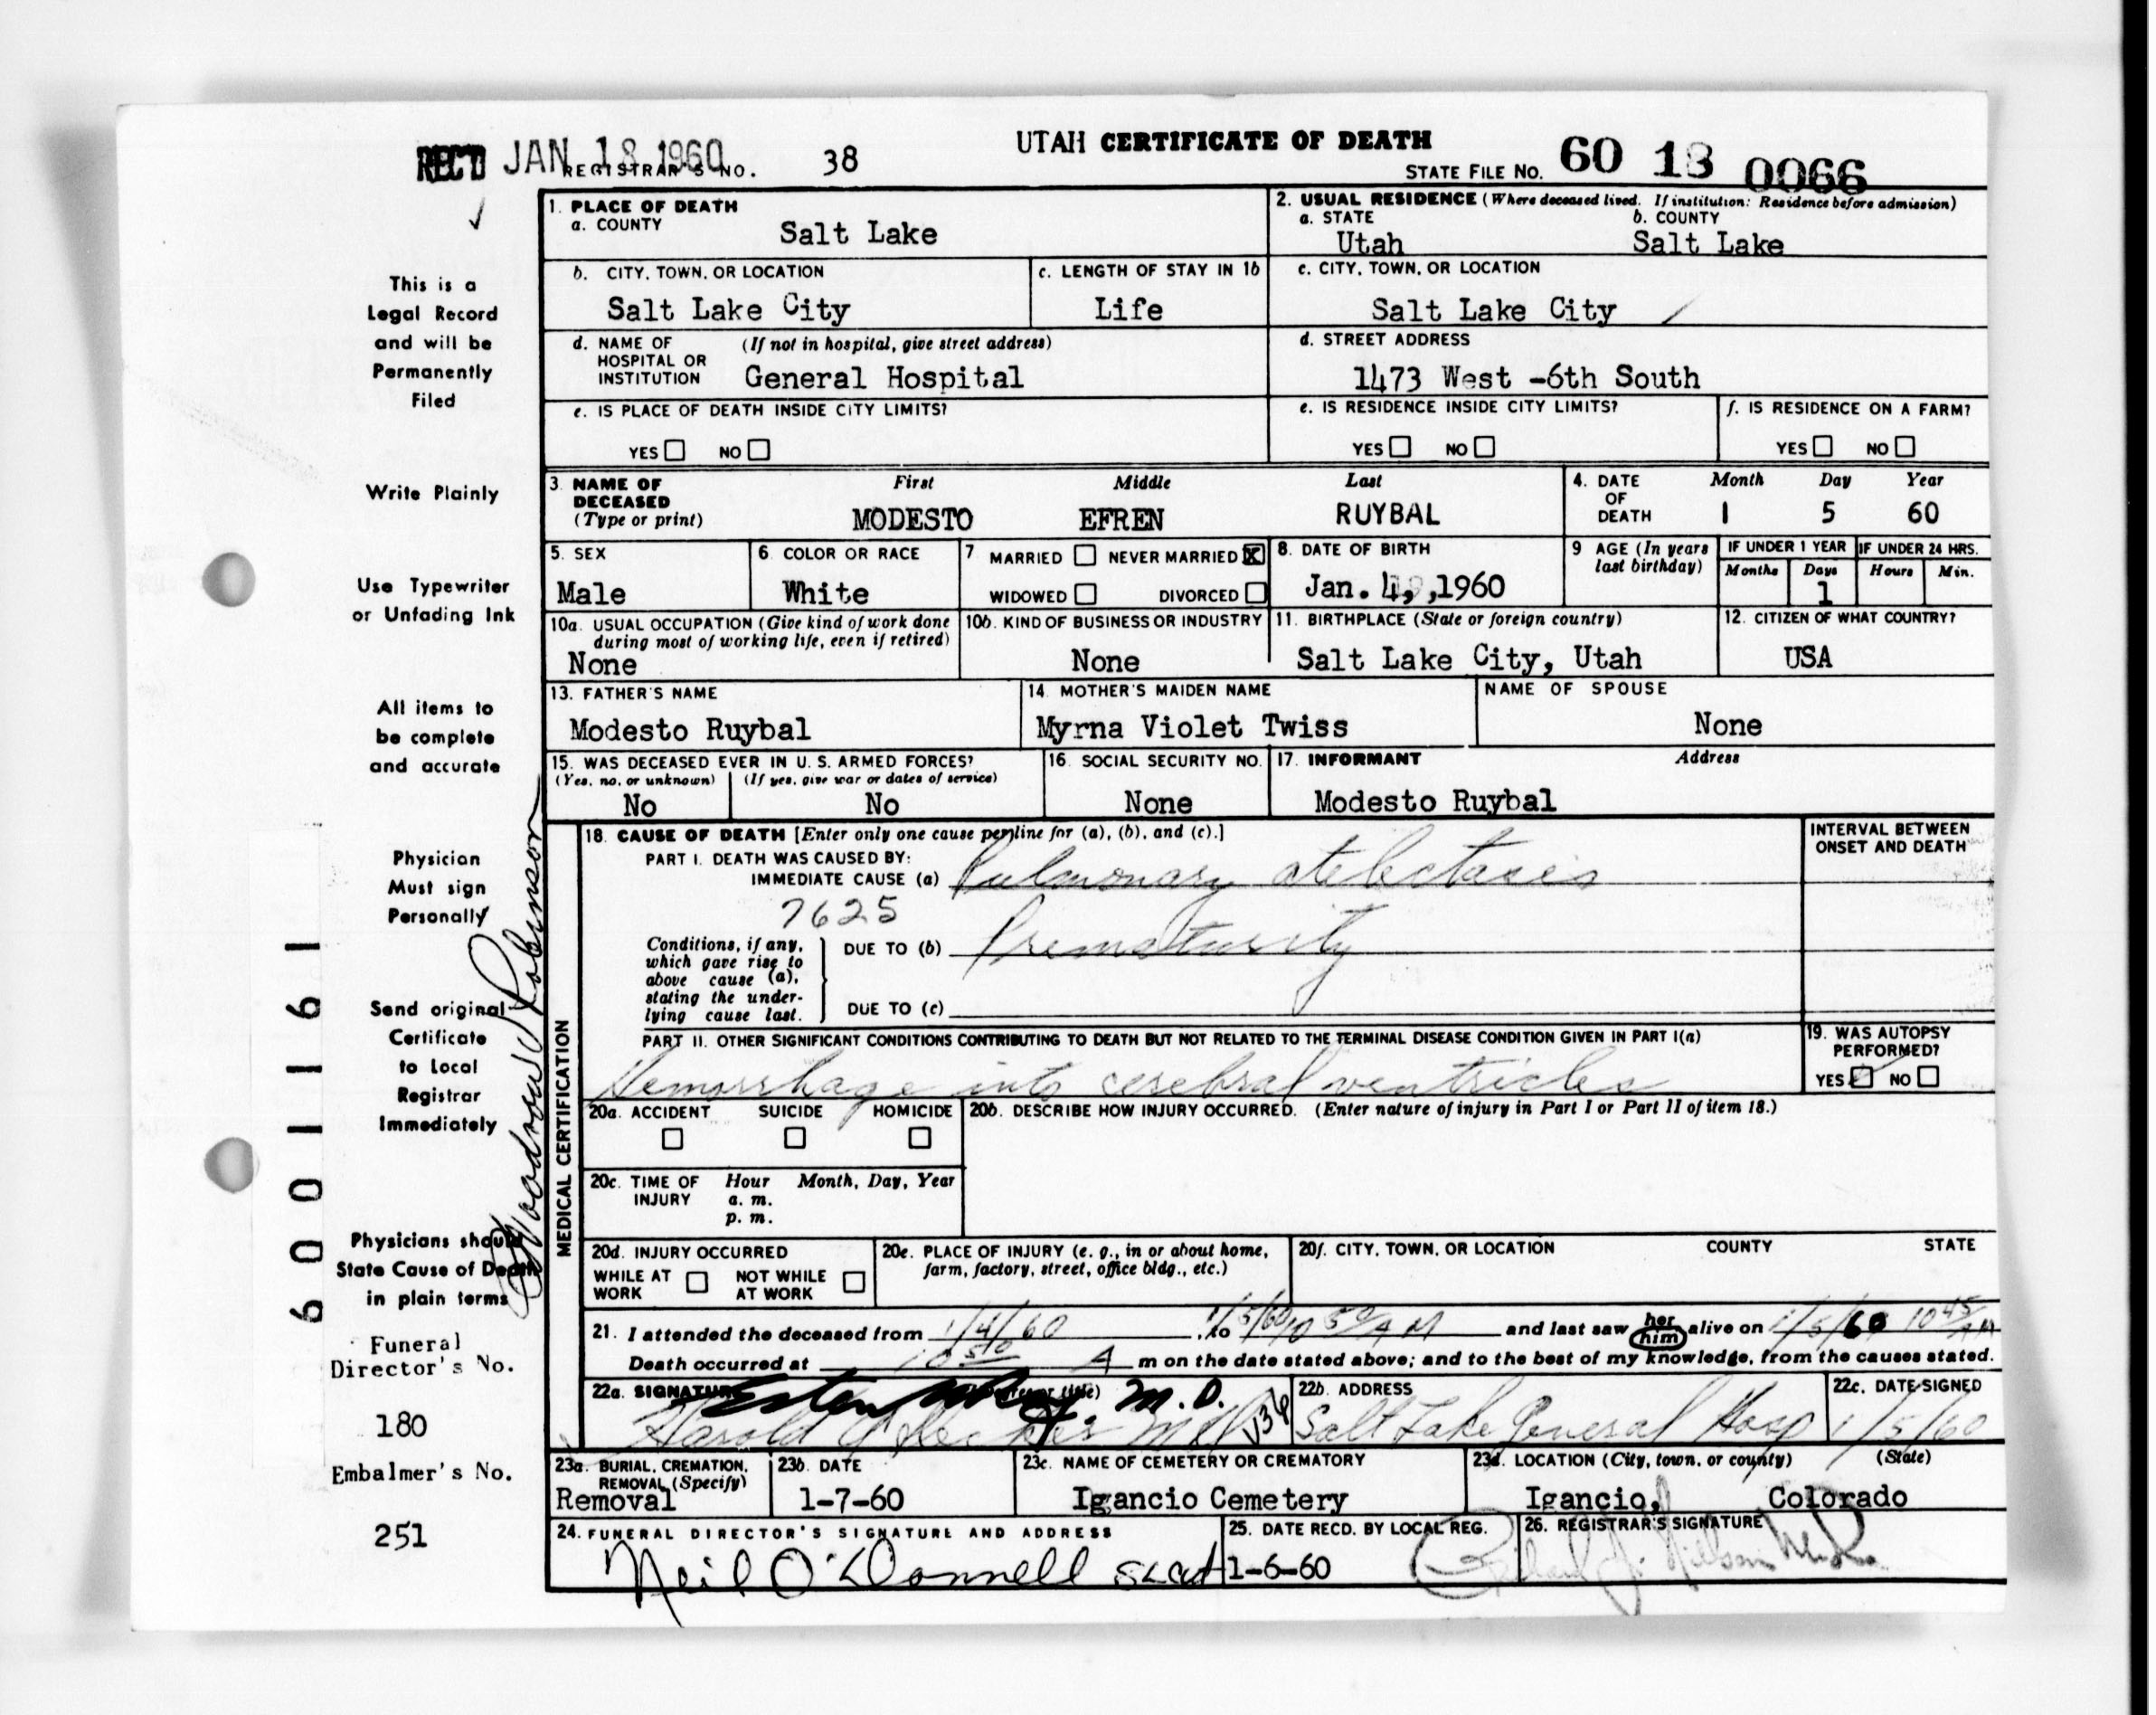 REC'D JAN 18 1960 REGISTRAR'S NO. 38
UTAH CERTIFICATE OF DEATH
STATE FILE NO. 60 18 0066
1. PLACE OF DEATH
a. COUNTY Salt Lake
2. USUAL RESIDENCE (Where deceased lived. If institution: Residence before admission)
a. STATE Utah b. COUNTY Salt Lake
b. CITY, TOWN, OR LOCATION Salt Lake City
c. LENGTH OF STAY IN 1b Life
c. CITY, TOWN, OR LOCATION Salt Lake City
d. NAME OF HOSPITAL OR INSTITUTION (If not in hospital, give street address) General Hospital
d. STREET ADDRESS 1473 West -6th South
e. IS PLACE OF DEATH INSIDE CITY LIMITS? YES NO
e. IS RESIDENCE INSIDE CITY LIMITS? YES NO
f. IS RESIDENCE ON A FARM? YES NO
3. NAME OF DECEASED (Type or print) First Middle Last
MODESTO EFREN RUYBAL
4. DATE OF DEATH Month Day Year
1 5 60
5. SEX Male
6. COLOR OR RACE White
7 MARRIED NEVER MARRIED X WIDOWED DIVORCED
8. DATE OF BIRTH Jan. 4, ,1960
9 AGE (In years last birthday)
IF UNDER 1 YEAR Months Days 1
IF UNDER 24 HRS. Hours Min.
10a. USUAL OCCUPATION (Give kind of work done during most of working life, even if retired) None
10b. KIND OF BUSINESS OR INDUSTRY None
11. BIRTHPLACE (State or foreign country) Salt Lake City, Utah
12. CITIZEN OF WHAT COUNTRY? USA
13. FATHER'S NAME Modesto Ruybal
14. MOTHER'S MAIDEN NAME Myrna Violet Twiss
NAME OF SPOUSE None
15. WAS DECEASED EVER IN U. S. ARMED FORCES?
(Yes, no, or unknown) No (If yes, give war or dates of service) No
16. SOCIAL SECURITY NO. None
17. INFORMANT Address
Modesto Ruybal
MEDICAL CERTIFICATION
18. CAUSE OF DEATH [Enter only one cause per line for (a), (b), and (c).]
INTERVAL BETWEEN ONSET AND DEATH
PART I. DEATH WAS CAUSED BY:
IMMEDIATE CAUSE (a) Pulmonary atelectasis
7625
Conditions, if any, which gave rise to above cause (a), stating the underlying cause last.
DUE TO (b) Prematurity
DUE TO (c)
PART II. OTHER SIGNIFICANT CONDITIONS CONTRIBUTING TO DEATH BUT NOT RELATED TO THE TERMINAL DISEASE CONDITION GIVEN IN PART I(a)
Hemorrhage into cerebral ventricles
19. WAS AUTOPSY PERFORMED? YES NO
20a. ACCIDENT SUICIDE HOMICIDE
20b. DESCRIBE HOW INJURY OCCURRED. (Enter nature of injury in Part I or Part II of item 18.)
20c. TIME OF INJURY Hour a. m. p. m. Month, Day, Year
20d. INJURY OCCURRED WHILE AT WORK NOT WHILE AT WORK
20e. PLACE OF INJURY (e. g., in or about home, farm, factory, street, office bldg., etc.)
20f. CITY, TOWN, OR LOCATION COUNTY STATE
21. I attended the deceased from 1/4/60, to 1/5/60 10 50 AM and last saw her him alive on 1/5/60 10 45 AM
Death occurred at 10 50 A m on the date stated above; and to the best of my knowledge, from the causes stated.
22a. SIGNATURE M.D.
Harold
22b. ADDRESS Salt Lake General Hosp
22c. DATE SIGNED 1/5/60
23a. BURIAL, CREMATION, REMOVAL (Specify) Removal
23b. DATE 1-7-60
23c. NAME OF CEMETERY OR CREMATORY Igancio Cemetery
23d. LOCATION (City, town, or county) (State)
Igancio, Colorado
24. FUNERAL DIRECTOR'S SIGNATURE AND ADDRESS
Neil O'Donnell
25. DATE RECD. BY LOCAL REG. 1-6-60
26. REGISTRAR'S SIGNATURE
This is a
Legal Record
and will be
Permanently
Filed
Write Plainly
Use Typewriter
or Unfading Ink
All items to
be complete
and accurate
Physician
Must sign
Personally
Send original
Certificate
to Local
Registrar
Immediately
Physicians should
State Cause of Death
in plain terms
Funeral
Director's No.
180
Embalmer's No.
251
Woodrow Robinson
6001161